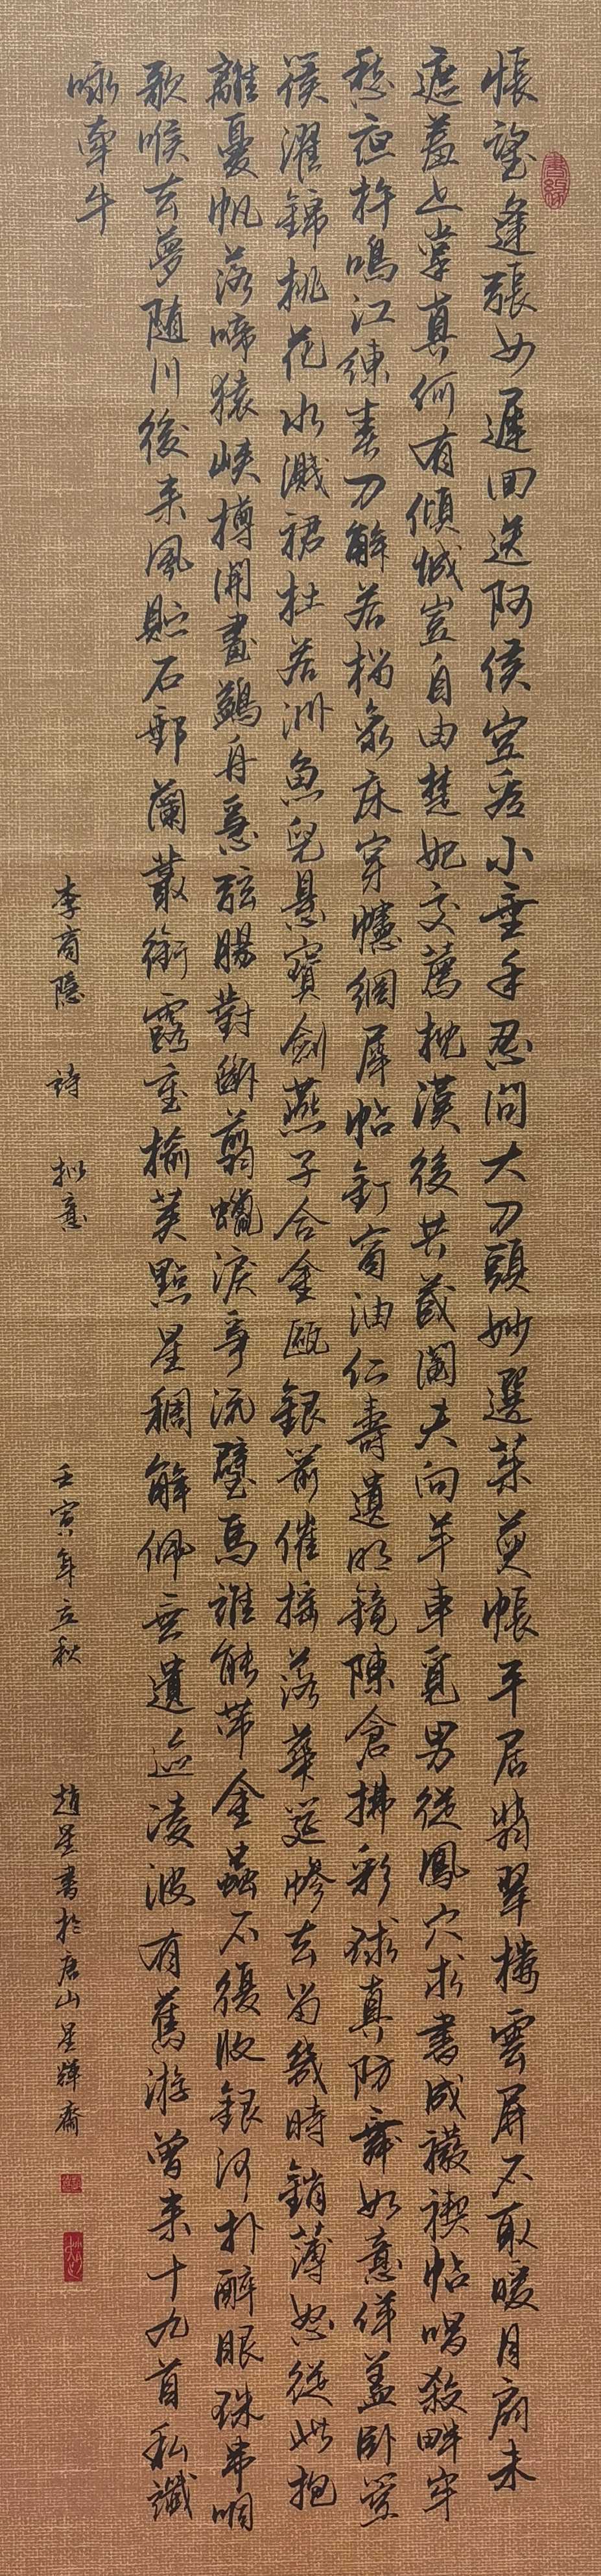 悵望逢張女遲回送阿侯空看小垂手忍問大刀頭妙選茱萸帳平居翡翠樓雲屏不取暖月扇未
遮羞上掌真何有傾城豈自由楚妃交薦枕漢後共藏鬮夫向羊車覓男從鳳穴求書成祓禊帖唱殺畔牢
愁夜杵鳴江練春刀解若榴象床穿幰網犀帖釘窗油仁壽遺明鏡陳倉拂彩球真防舞如意佯蓋臥箜
篌濯錦桃花水濺裙杜若洲魚兒懸寶劍燕子合金甌銀箭催搖落華筵慘去留幾時銷薄怒從此抱
離憂帆落啼猿峽樽開畫鷁舟急弦腸對斷剪蠟淚爭流璧馬誰能帶金蟲不復收銀河撲醉眼珠串咽
歌喉去夢隨川後來風貯石郵蘭叢銜露重榆莢點星稠解佩無遺迹凌波有舊游曾來十九首私讖
詠牽牛
李商隱 詩 擬意 壬寅年立秋 趙星書於唐山星輝齋